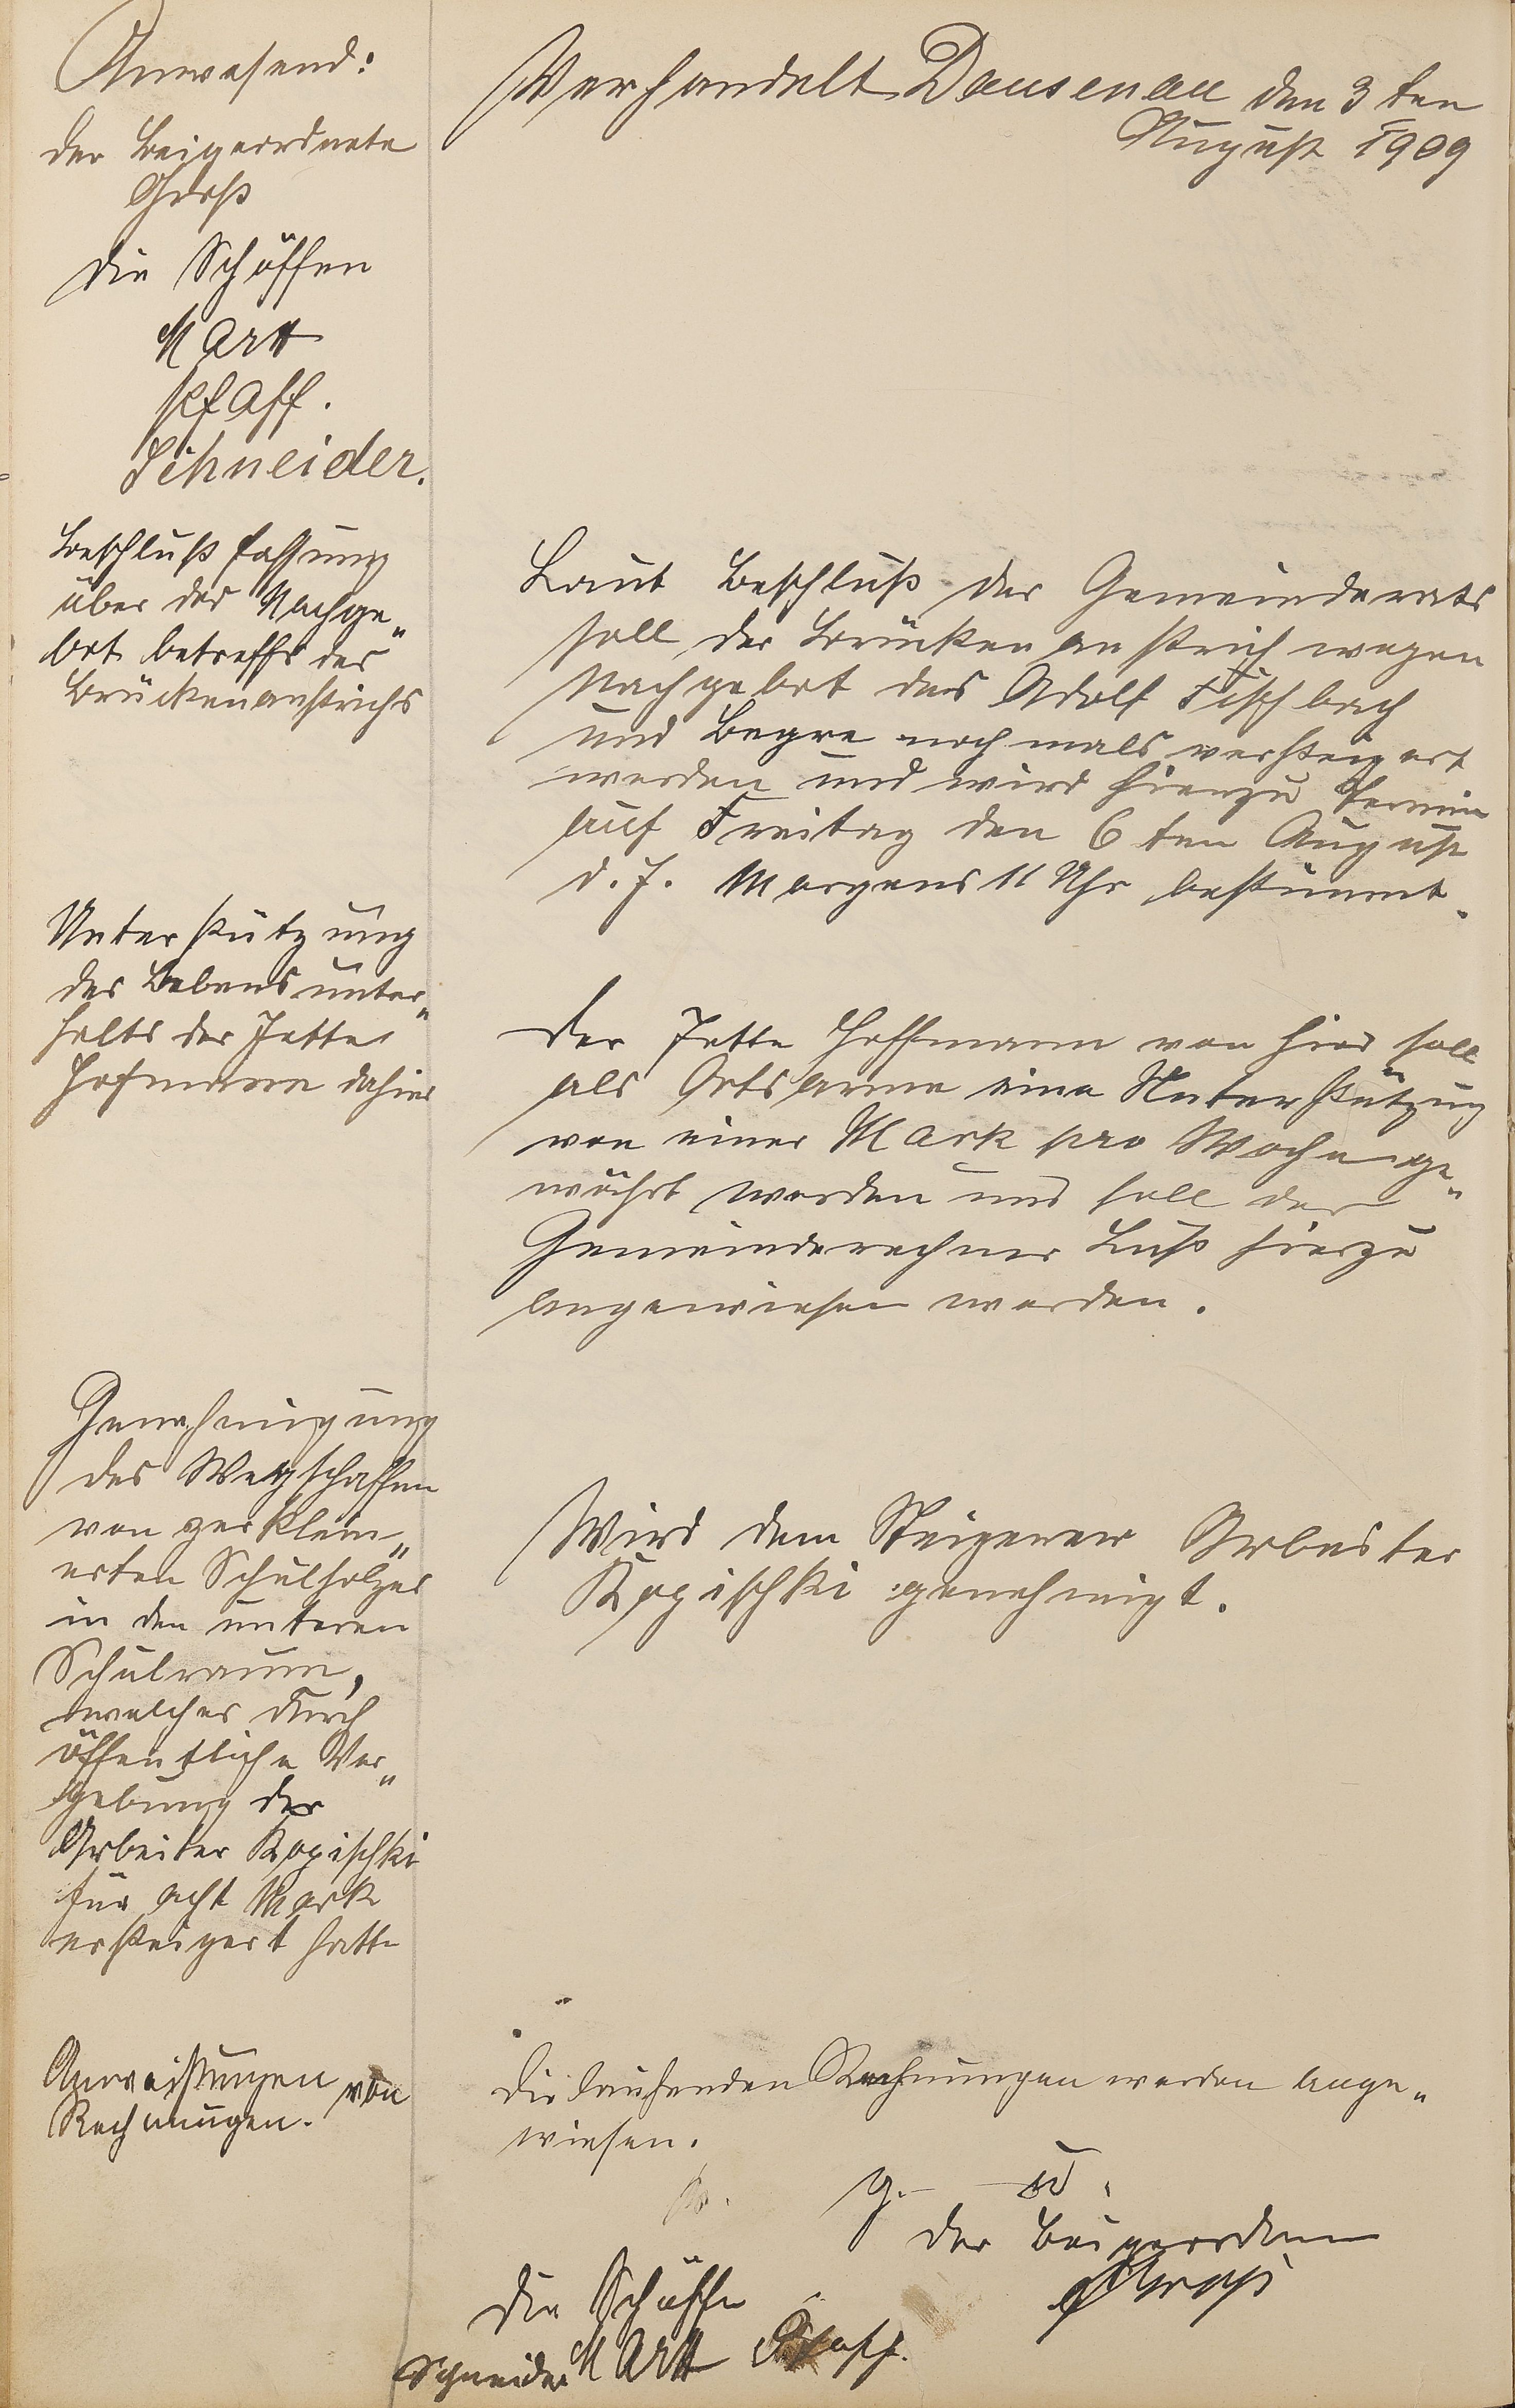 Anwesend:
der Beigeordnete
Groß
die Schöffen
Martt
Pfaff.
Schneider.
Verhandelt Dausenau den 3ten
August 1909
Beschlußfassung
über das Nachge„
bot betreffs des
Brückenanstrichs
Laut Beschluß des Gemeinderats
soll der Brückenanstrich wegen
Nachgebot des Adolf Fischbach
und nochmals versteigert
werden und wird hierzu Termin
auf Freitag den 6ten August
d. J. Morgens 11 Uhr bestimmt.
Unterstützung
des Lebensunter„
halts der Jette
Hofmann dahier
Der Jette Hoffmann von hier soll
als Ortsarme eine Unterstützung
von einer Mark pro Woche ge„
währt werden und soll der
Gemeinderechner hierzu
angewiesen werden.
Genehmigung
des Wegschaffen
von zerklein„
erten Schulholzes
in den unteren
Schulraum,
welches durch
öffentliche Ver„
gebung der
Arbeiter Kopischki
für acht Mark
ersteigert hatte
Wird dem Steigerer Arbeiter
Kopischki genehmigt.
Anweisungen von
Rechnungen.
Die laufenden Rechnungen werden ange„
wiesen.
g. u.
Der Beigeordnete
Groß
Die Schöffen
Schneider Martt Pfaff.